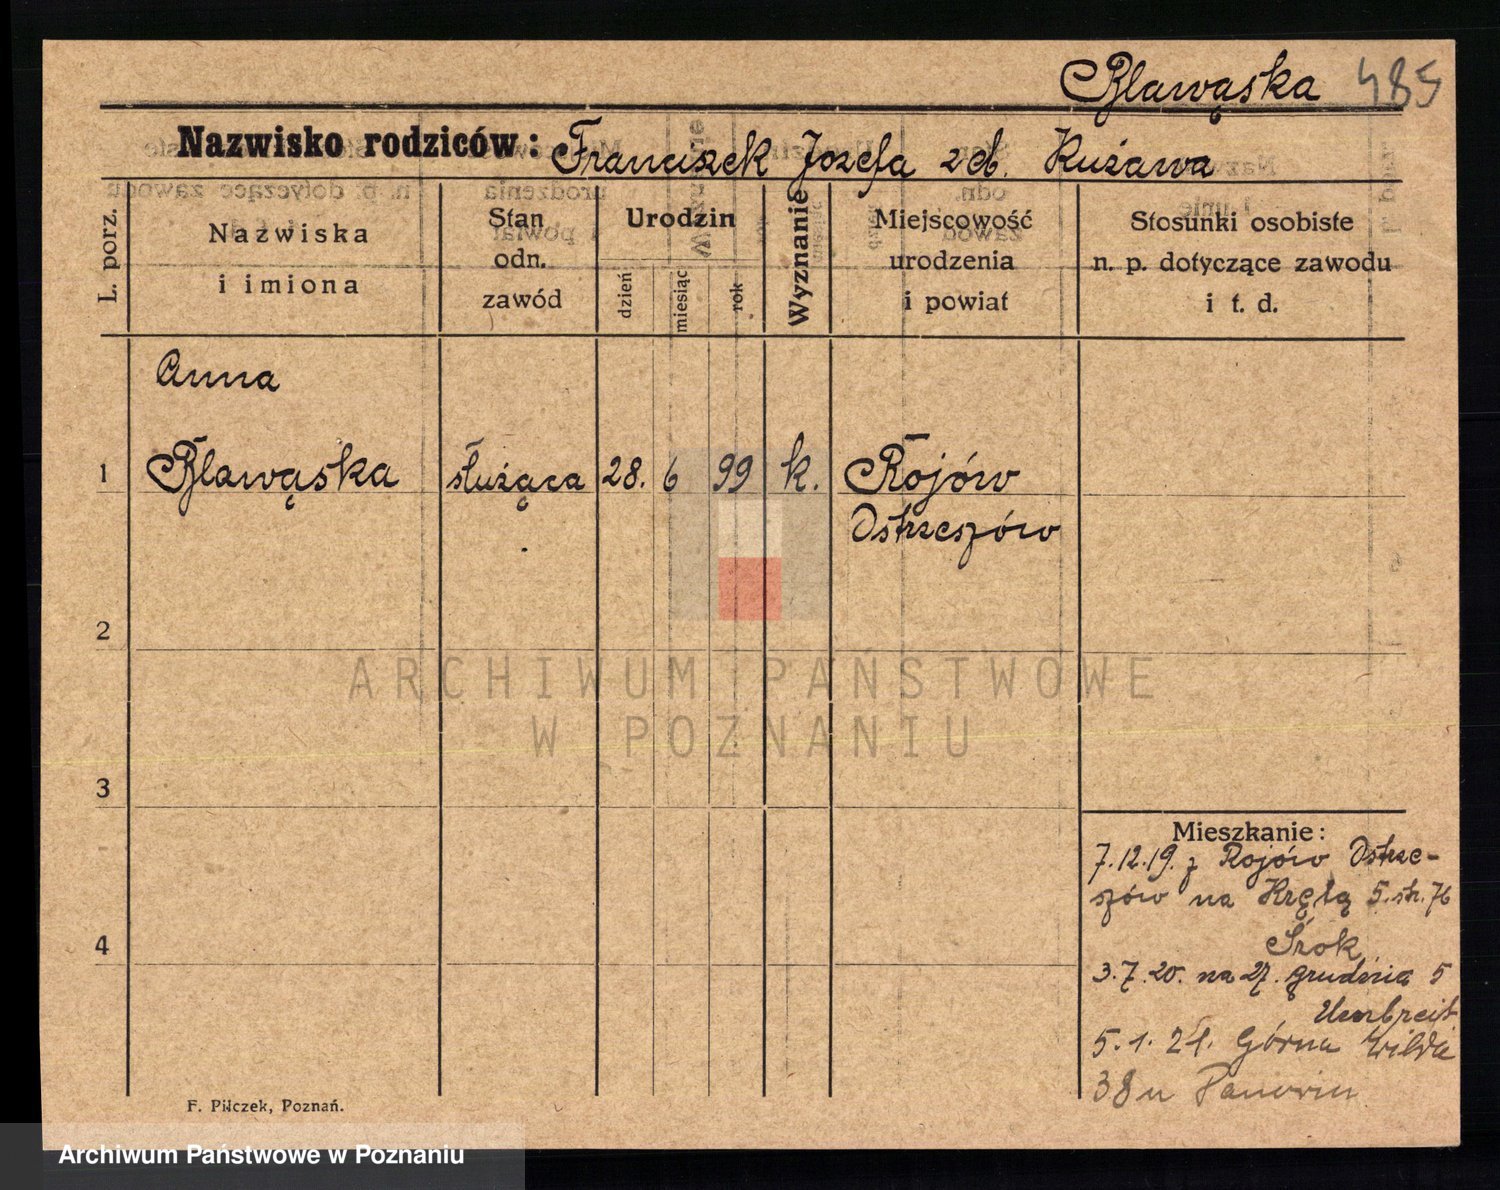 Bławąska 485
Nazwisko rodziców: Franciszek Jozefa z d. Kużawa
L. porz.
Nazwiska
i imiona
Stan
odn.
zawód
Urodzin
dzień
miesiąc
rok
Wyznanie
Miejscowość
urodzenia
i powiat
Stosunki osobiste
n. p. dotyczące zawodu
i t. d.
Anna
1 Bławąska służąca 28. 6 99 k. Rojów
Ostrzeszów
2
ARCHIWUM PAŃSTWOWE
W POZNANIU
3
Mieszkanie:
7.12.19. z Rojów Ostrze-
szów na Krętą 5. str. 76
4
Śrok
3.7.20. na 27. grudnia 5
Umbreit
5.1.21. Górna Wilda
38 u
F. Pilczek, Poznań.
Archiwum Państwowe w Poznaniu